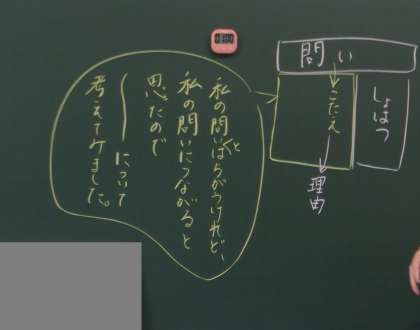 問い
しょはつ
こたえ
理由
私の問いとはちがうけれど、
私の問いにつながると
思ったので
について
考えてみました。